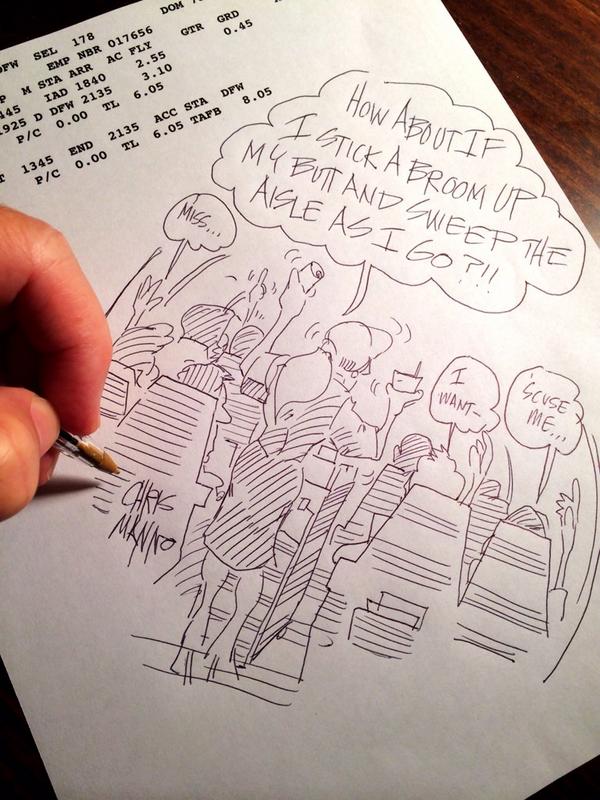 DFW SEL 178 DOM
EMP NBR 017656
P M STA ARR AC FLY GTR GRD
445 IAD 1840 2.55 0.45
1925 D DFW 2135 3.10
P/C 0.00 TL 6.05
T 1345 END 2135 ACC STA DFW
P/C 0.00 TL 6.05 TAFB 8.05
HOW ABOUT IF
I STICK A BROOM UP
MY BUTT AND SWEEP THE
AISLE AS I GO?!!
MISS...
I
WANT-
'SCUSE
ME...
CHRIS
MANNO